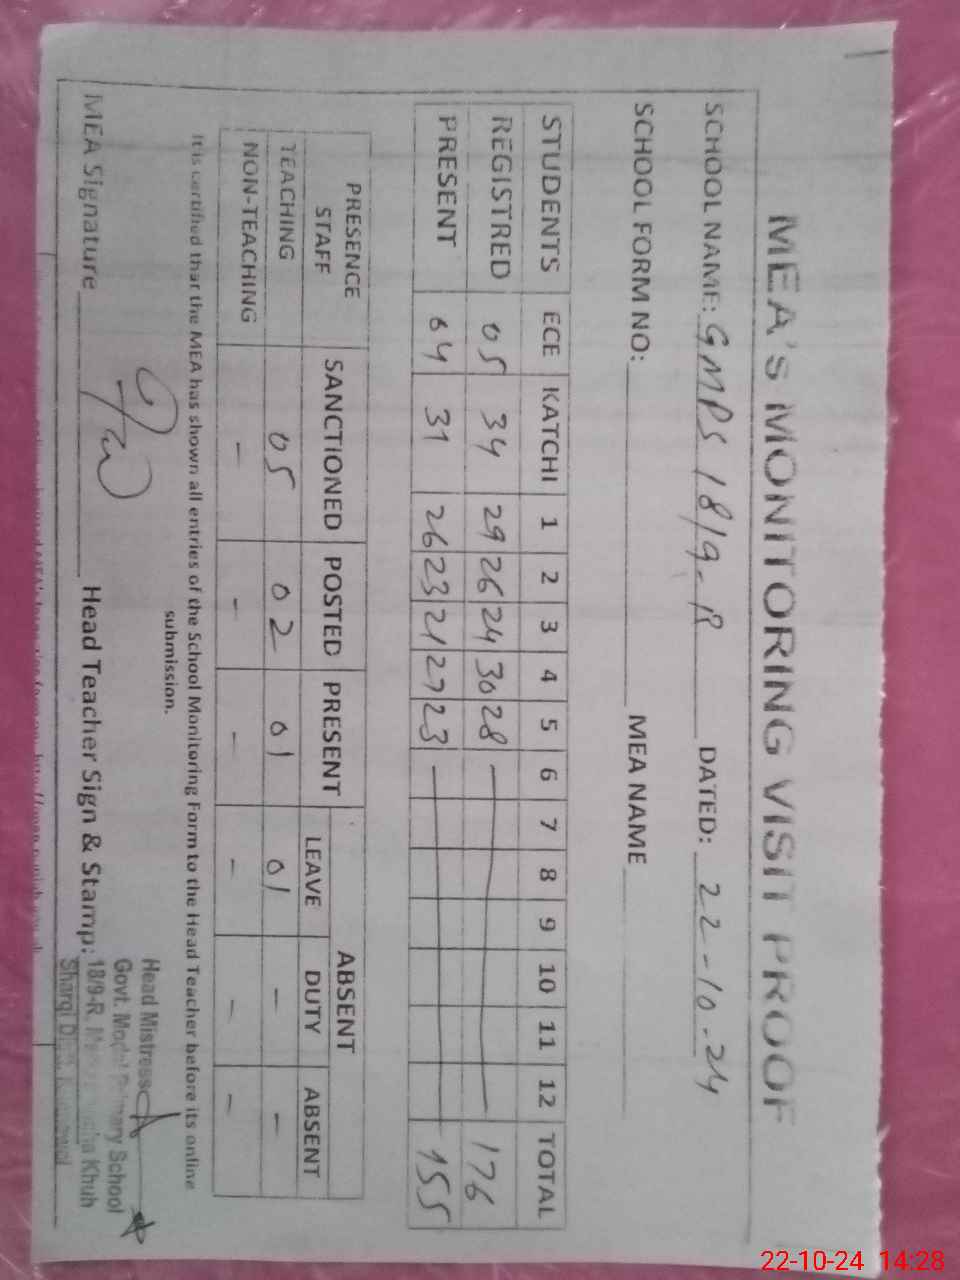 MEA's MONITORING VISIT PROOF
SCHOOL NAME: GMPS 18/9-R DATED: 22-10-24
SCHOOL FORM NO: MEA NAME
STUDENTS ECE KATCHI 1 2 3 4 5 6 7 8 9 10 11 12 TOTAL
REGISTRED 05 34 29 26 24 30 28 — 176
PRESENT 04 31 26 23 21 27 23 — 155
PRESENCE STAFF SANCTIONED POSTED PRESENT ABSENT
LEAVE DUTY ABSENT
TEACHING 05 02 01 01 - -
NON-TEACHING - - - - - -
It is certified that the MEA has shown all entries of the School Monitoring Form to the Head Teacher before its online
submission.
MEA Signature Head Teacher Sign & Stamp:
Head Mistress
Govt. Model Primary School
18/9-R. Khuh
Sharqi
22-10-24 14:28